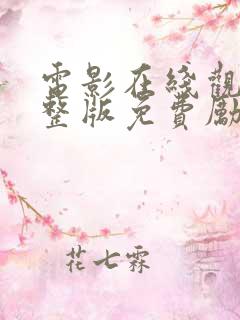 電影在綫觀
整版免費勵
花七霖